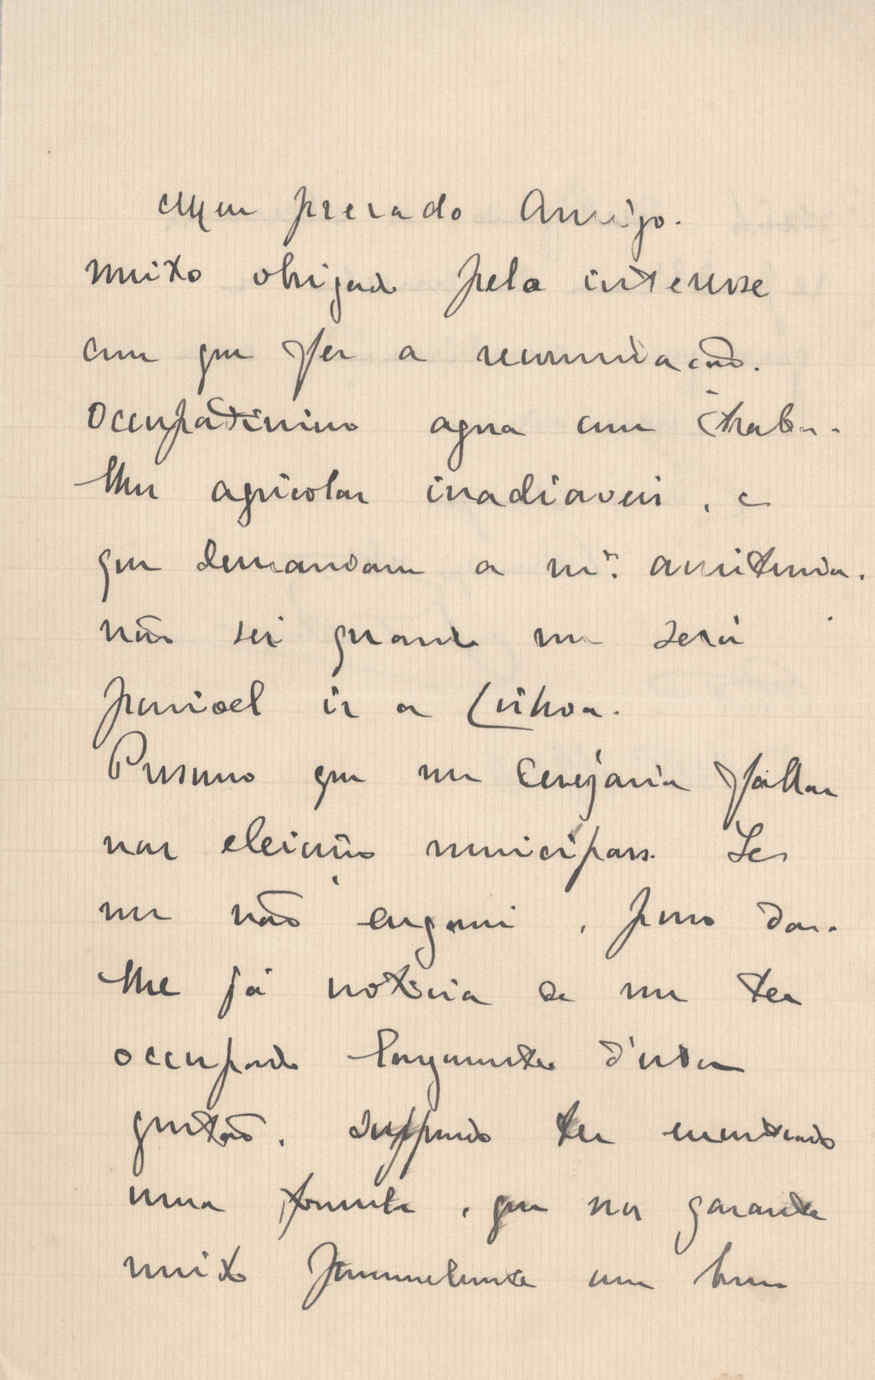 Meu prezado Amigo.
Muito obrigado pelo interesse
com que fez a recommendação.
Occupadissimo agora com traba-
lhos agricolas inadiaveis, e
que demandam a m.ª assistencia,
não sei quando me será
possivel ir a Lisboa.
Presumo que me desejaria fallar
nas eleições municipaes. Se
me não engano, posso dar-
lhe já noticia de me ter
occupado largamente d'essa
questão. Supponho ter encontrado
uma formula, que nos garante
muito provavelmente um bom